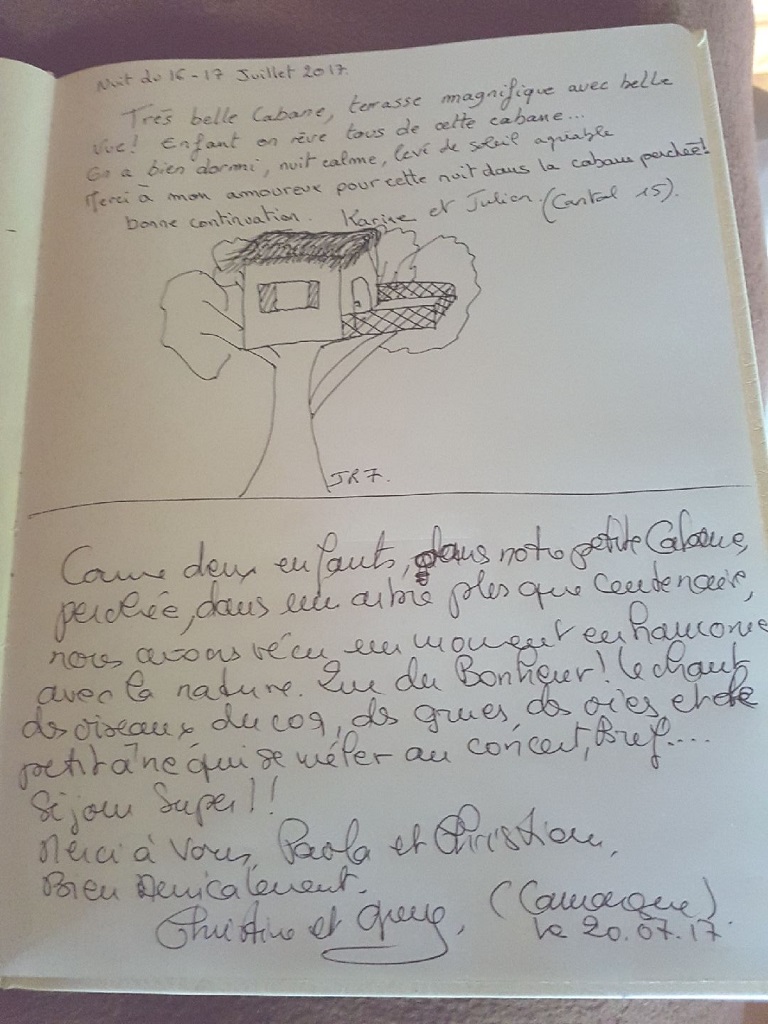 Nuit du 16-17 Juillet 2017.
Très belle Cabane, terasse magnifique avec belle
vue! Enfant on rêve tous de cette cabane...
On a bien dormi, nuit calme, levé de soleil agréable
Merci à mon amoureux pour cette nuit dans la cabane perchée!
bonne continuation. Karine et Julien. (Cantal 15).
JR7.
Comme deux enfants, dans notre petite Cabane,
perchée, dans un arbre plus que Centenaire,
nous avons vécu un moment en harmonie
avec la nature. Que du Bonheur! le chant
des oiseaux, du coq, des grues, des oies et de
petit âne qui se mêler au concert, Bref....
Séjour Super!!
Merci à Vous, Paola et Christian,
Bien Amicalement.
Christine et (Camargue)
le 20.07.17.